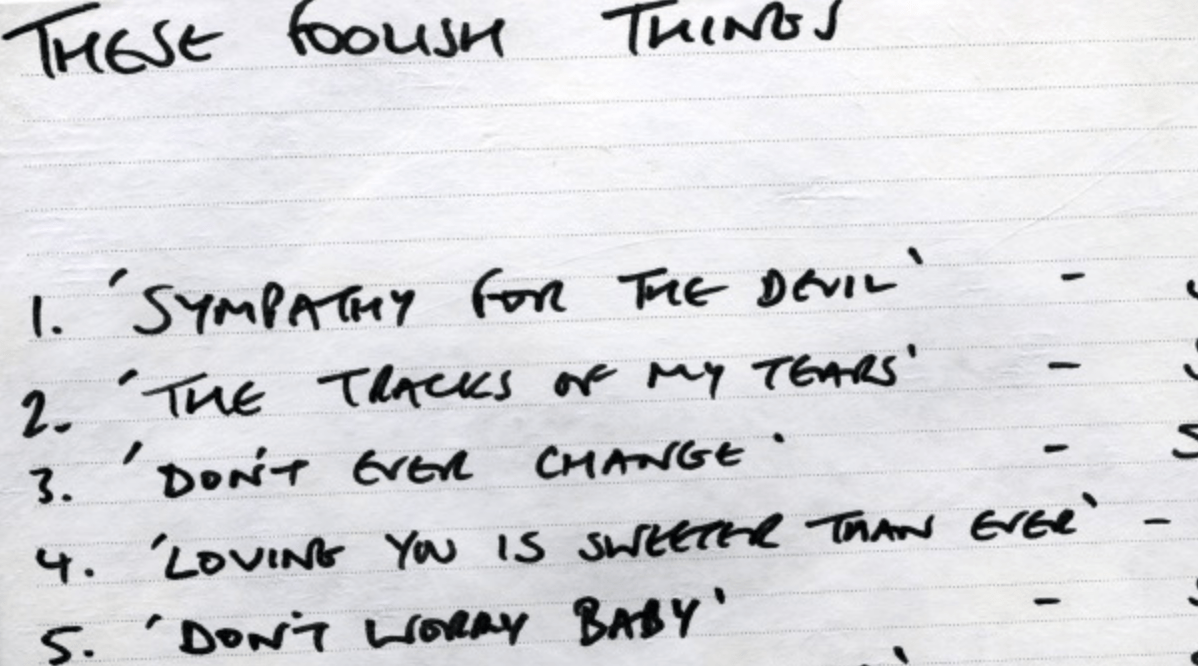 THESE FOOLISH THINGS
1. 'SYMPATHY FOR THE DEVIL' -
2. 'THE TRACKS OF MY TEARS' -
3. 'DON'T EVER CHANGE' -
4. 'LOVING YOU IS SWEETER THAN EVER' -
5. 'DON'T WORRY BABY' -